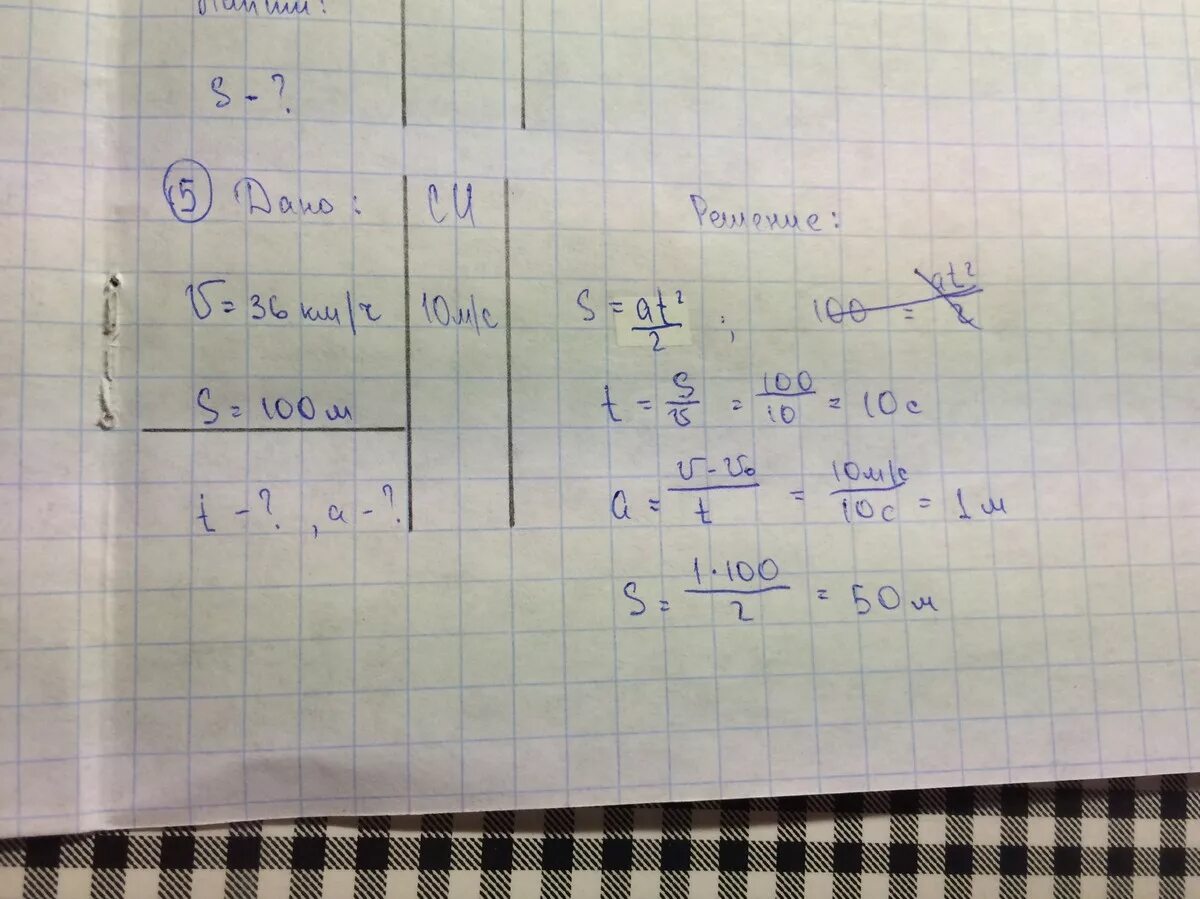 Найти:
S - ?
5 Дано: СИ Решение:
v = 36 км/ч 10 м/с S = at²/2 ; 100 = at²/2
S = 100 м t = S/v = 100/10 = 10 с
t - ? , a - ? a = (v - v₀)/t = 10 м/с / 10 с = 1 м
S = 1·100/2 = 50 м